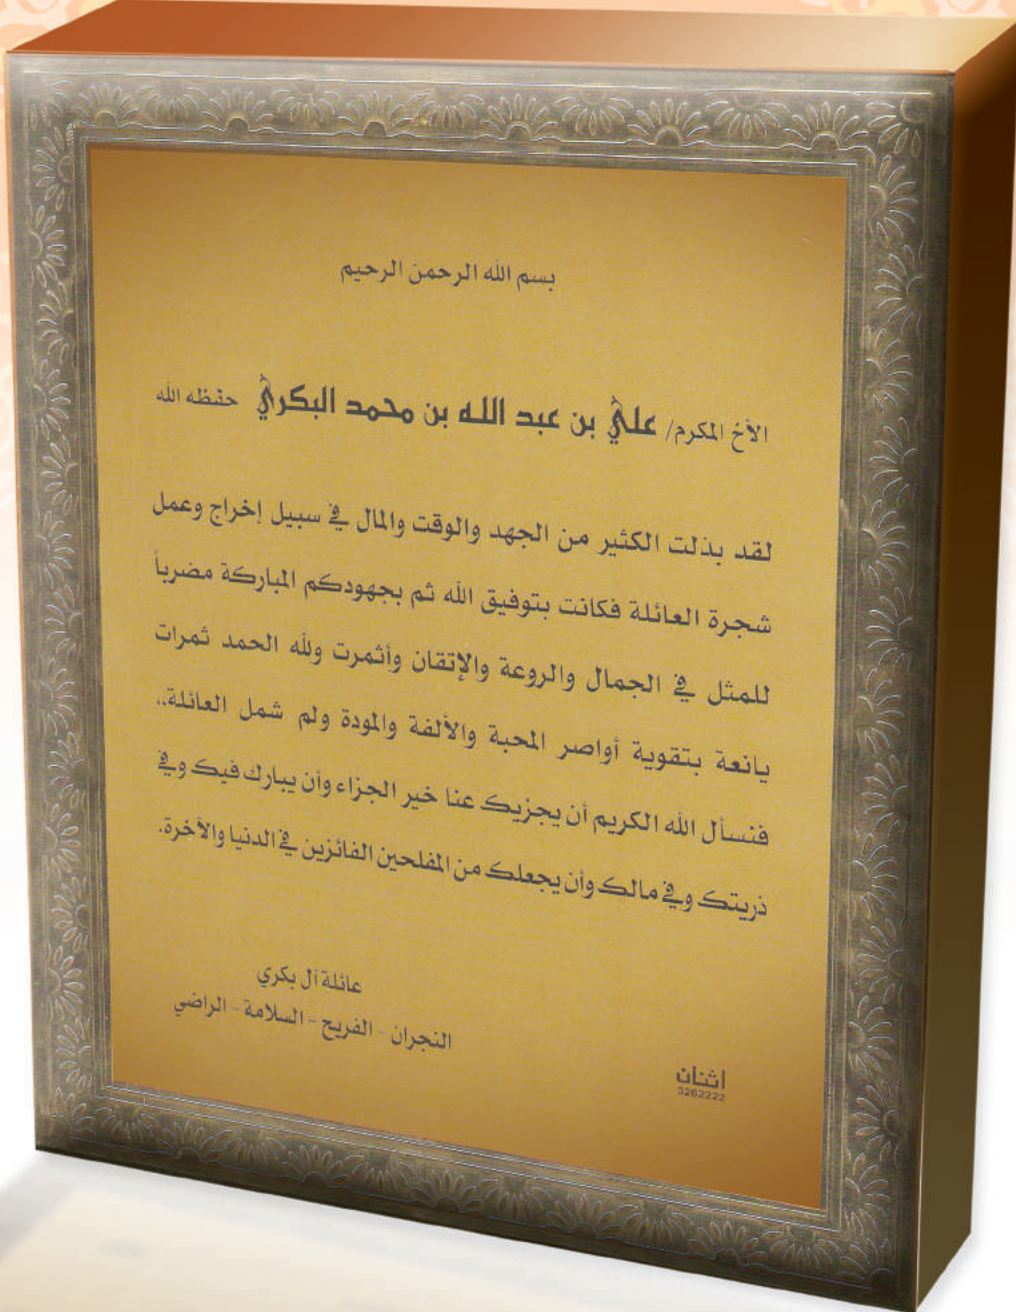 بسم الله الرحمن الرحيم
الأخ المكرم/ علي بن عبد الله بن محمد البكري حفظه الله
لقد بذلت الكثير من الجهد والوقت والمال في سبيل إخراج وعمل
شجرة العائلة فكانت بتوفيق الله ثم بجهودكم المباركة مضرباً
للمثل في الجمال والروعة والإتقان وأثمرت ولله الحمد ثمرات
يانعة بتقوية أواصر المحبة والألفة والمودة ولم شمل العائلة،،
فنسأل الله الكريم أن يجزيك عنا خير الجزاء وأن يبارك فيك وفي
ذريتك وفي مالك وأن يجعلك من المفلحين الفائزين في الدنيا والآخرة.
عائلة آل بكري
النجران - الفريح - السلامة - الراضي
اثنان
3262222